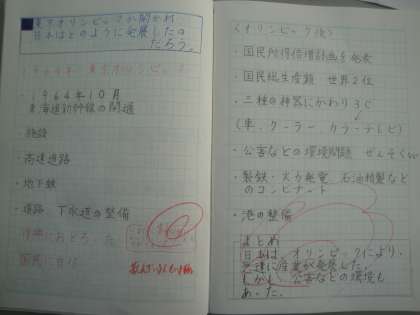 東京オリンピックが開かれ
日本はどのように発展したの
だろう。
1964年 東京オリンピック
・1964年10月
東海道新幹線の開通
・施設
・高速道路
・地下鉄
・道路、下水道の整備
国民に自信
(オリンピック後)
・国民所得倍増計画を発表
・国民総生産額 世界2位
・三種の神器にかわり3C
(車、クーラー カラーテレビ)
・公害などの環境問題 ぜんそく
・製鉄・火力発電 石油精製など
のコンビナート
・港の整備
まとめ
日本は、オリンピックにより、
急速に産業が発展した。
しかし、公害などの環境も
あった。